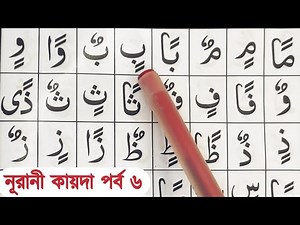 مًا مٍ مٌ بًا بٍ بٌ وًا وٍ
وٌ فًا فٍ فٌ ثًا ثٍ ثٌ ذًى
ذٍ ذٌ ظًا ظٍ ظٌ زًا زٍ زٌ
নূরানী কায়দা পর্ব ৬